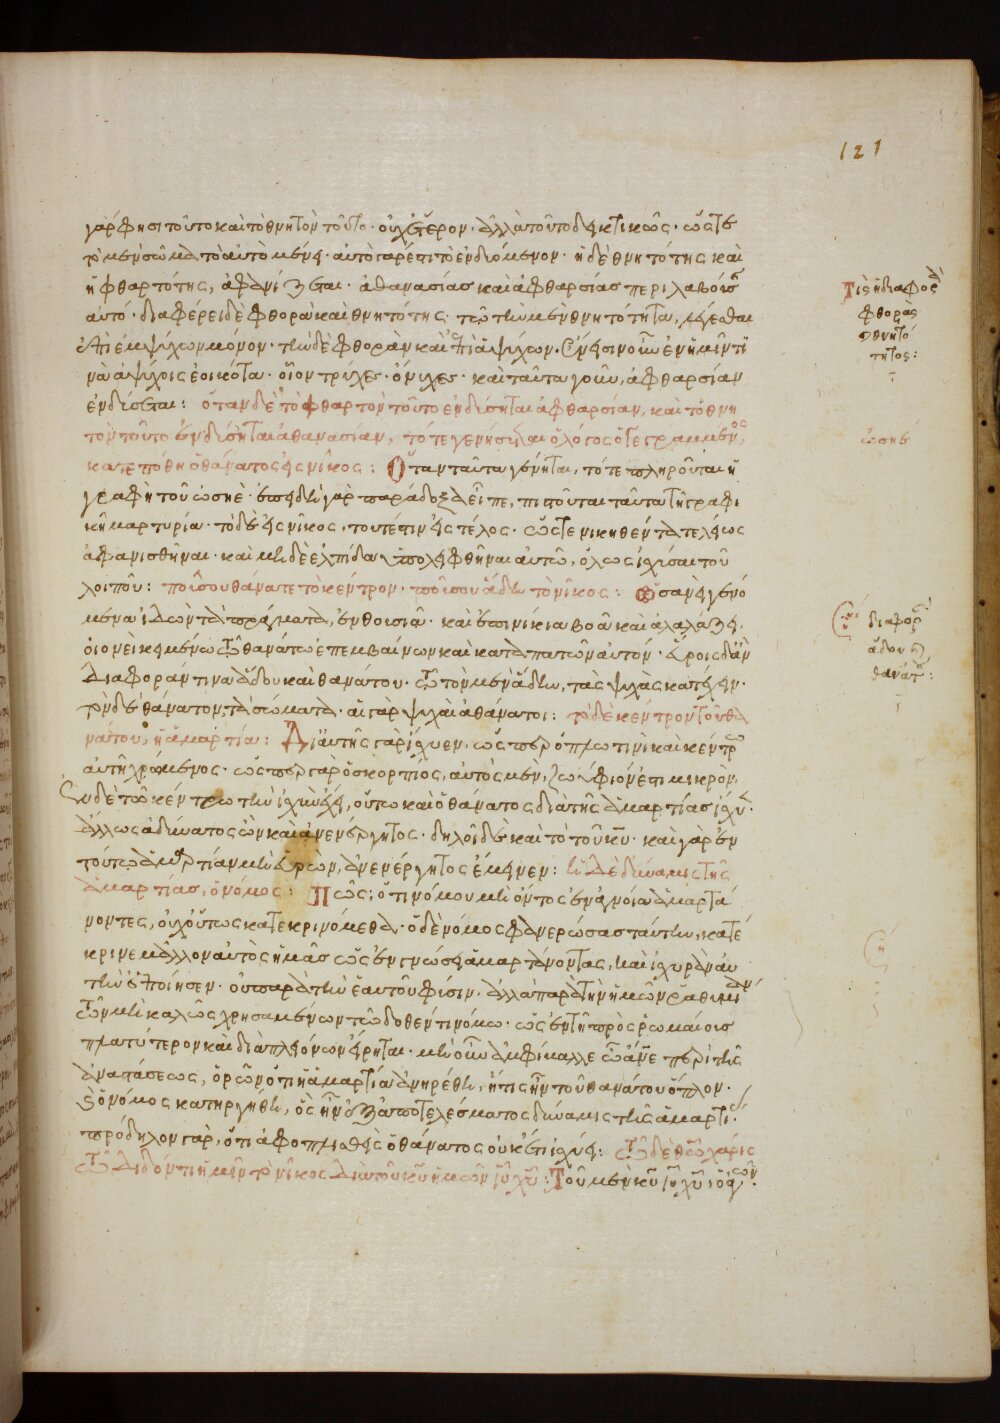 121
γάρ φησι τοῦτο καὶ τὸ θνητὸν τοῦτο· οὐχ ἕτερον· ἀλλὰ τοῦτο δεικτικῶς· ὥστε
τὸ μὲν σῶμα τὸ αὐτὸ μένει· αὐτὸ γάρ ἐστι τὸ ἐνδυόμενον· ἡ δὲ θνητότης καὶ
ἡ φθαρτότης, ἀφανίζεται· ἀθανασίας καὶ ἀφθαρσίας περιλαβούσης
αὐτό· διαφέρει δὲ φθορὰ καὶ θνητότης· τῷ τὴν μὲν θνητότητα, λέγεσθαι
ἐπὶ ἐμψύχων μόνον· τὴν δὲ φθορὰν καὶ ἐπὶ ἀψύχων. ἔνεισιν οὖν ἐν ἡμῖν τι
νὰ ἀψύχοις ἐοικότα· οἷον τρίχες· ὄνυχες· καὶ ταῦτα γοῦν, ἀφθαρσίαν
ἐνδύεται: ὅταν δὲ τὸ φθαρτὸν τοῦτο ἐνδύσηται ἀφθαρσίαν, καὶ τὸ θνη
τὸν τοῦτο ἐνδύσηται ἀθανασίαν, τότε γενήσεται ὁ λόγος ὁ γεγραμμένος,
κατεπόθη ὁ θάνατος εἰς νῖκος: Ὅταν ταῦτα γένηται, τότε πληροῦται ἡ
γραφὴ τοῦ ὡσηέ· ἐπειδὴ γὰρ παράδοξα εἶπε, πιστοῦται ταῦτα τῇ γραφι
κῇ μαρτυρίᾳ· τὸ δὲ εἰς νῖκος, τουτέστιν εἰς τέλος· ὥστε νικηθέντα τελείως
ἀφανισθῆναι· καὶ μὴ δὲ ἐλπίδα ὑπολειφθῆναι αὐτῷ, ὅλως ἰσχύσαι τοῦ
λοιποῦ: ποῦ σου θάνατε τὸ κέντρον· ποῦ σου ἅδη τὸ νῖκος: Ὡσανεὶ γενό
μενα ἰδὼν τὰ πράγματα, ἐνθουσιᾷ· καὶ ἐπινίκια βοᾷ καὶ ἀλαλάζει,
οἱονεὶ κειμένῳ τῷ θανάτῳ ἐπεμβαίνων καὶ καταπατῶν αὐτόν· εὕροις δ' ἂν
διαφοράν τινα ᾅδου καὶ θανάτου· τῷ τὸν μὲν ᾅδην, τὰς ψυχὰς κατέχειν·
τὸν δὲ θάνατον, τὰ σώματα· αἱ γὰρ ψυχαὶ ἀθάνατοι: τὸ δὲ κέντρον τοῦ θα
νάτου, ἡ ἁμαρτία: Δι' αὐτῆς γὰρ ἴσχυεν, ὥσπερ ὅπλῳ τινὶ καὶ κέντρῳ
αὐτῇ χρώμενος· ὥσπερ γὰρ ὁ σκορπίος, αὐτὸς μὲν, ζωΰφιόν ἐστι μικρὸν,
ἐν δὲ τῷ κέντρῳ τὴν ἰσχὺν ἔχει, οὕτω καὶ ὁ θάνατος διὰ τῆς ἁμαρτίας ἰσχύει·
ἄλλως ἀδύνατος ὢν καὶ ἀνενέργητος· δηλοῖ δὲ καὶ τὸ τοῦ κυ· καὶ γὰρ ἐν
τούτῳ ἁμαρτίαν μὴ εὑρὼν, ἀνενέργητος ἔμεινεν: ἡ δὲ δύναμις τῆς
ἁμαρτίας, ὁ νόμος: Πῶς; ὅτι νόμου μὴ ὄντος ἐν ἀγνοίᾳ ἁμαρτά
νοντες, οὐχ οὕτως κατεκρινόμεθα· ὁ δὲ νόμος φανερώσας ταύτην, κατέ
κρινε μᾶλλον αὐτὸς ἡμᾶς ὡς ἐν γνώσει ἁμαρτάνοντας, καὶ ἰσχυρὰν αὐ
τὴν ἐποίησεν· οὐ παρὰ τὴν ἑαυτοῦ φύσιν· ἀλλὰ παρὰ τὴν ἡμῶν ῥαθυμίαν
τῶν μὴ καλῶς χρησαμένων τῷ δοθέντι νόμῳ· ὡς ἐν τῇ πρὸς ῥωμαίους
πλατύτερον καὶ διὰ πλειόνων εἴρηται· μὴ οὖν ἀμφίβαλλε ὦ ἄνε περὶ τῆς
ἀναστάσεως, ὁρῶν ὅτι ἡ ἁμαρτία ἀνῃρέθη, ἥτις ἦν τοῦ θανάτου ὅπλον·
καὶ ὁ νόμος κατηργήθη, ὃς ἦν ἐξ ἀποτελέσματος δύναμις τῆς ἁμαρτίας·
πρόδηλον γὰρ, ὅτι ἀφοπλισθεὶς ὁ θάνατος οὐκ ἔτι ἰσχύει: Τῷ δὲ θῶ χάρις
τῷ διδόντι ἡμῖν τὸ νῖκος διὰ τοῦ κυ ἡμῶν ιυ χυ: Τοῦ μὲν κυ ιυ χυ
Τίς ἡ διαφορὰ
φθορᾶς
καὶ θνητό
τητος:
ὡσηέ
διαφορὰ
ᾅδου καὶ
θανάτου: